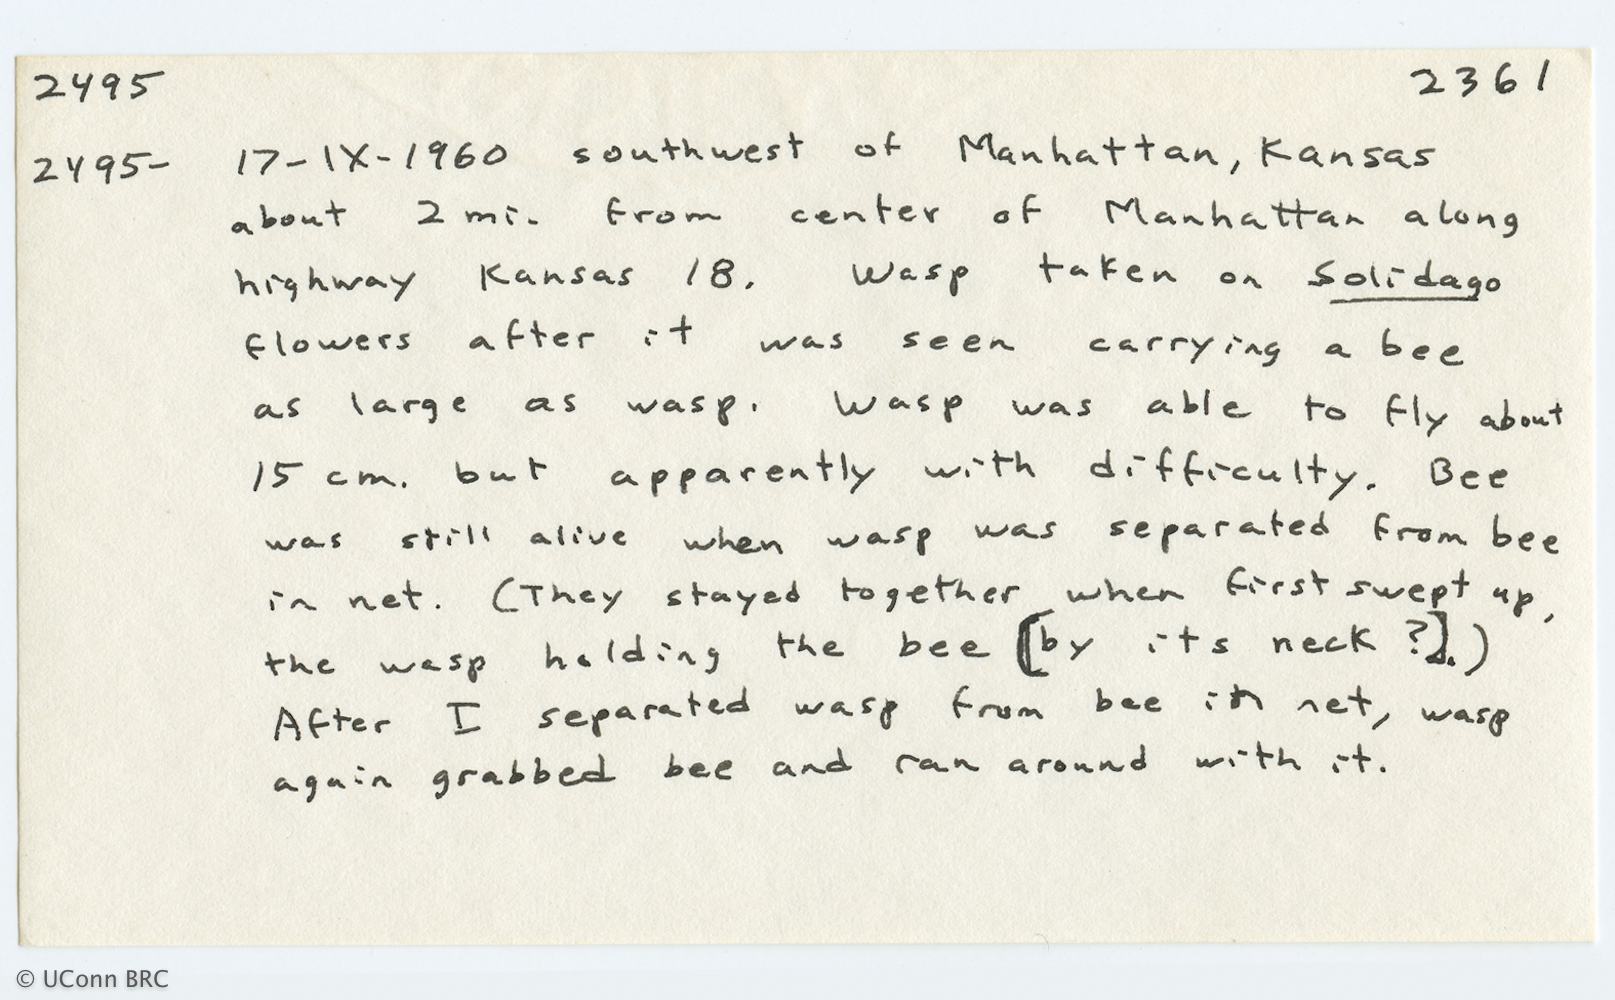 2495 2361
2495- 17-IX-1960 southwest of Manhattan, Kansas
about 2 mi. from center of Manhattan along
highway Kansas 18. Wasp taken on Solidago
flowers after it was seen carrying a bee
as large as wasp. Wasp was able to fly about
15 cm. but apparently with difficulty. Bee
was still alive when wasp was separated from bee
in net. (They stayed together when first swept up,
the wasp holding the bee [by its neck ?].)
After I separated wasp from bee in net, wasp
again grabbed bee and ran around with it.
© UConn BRC